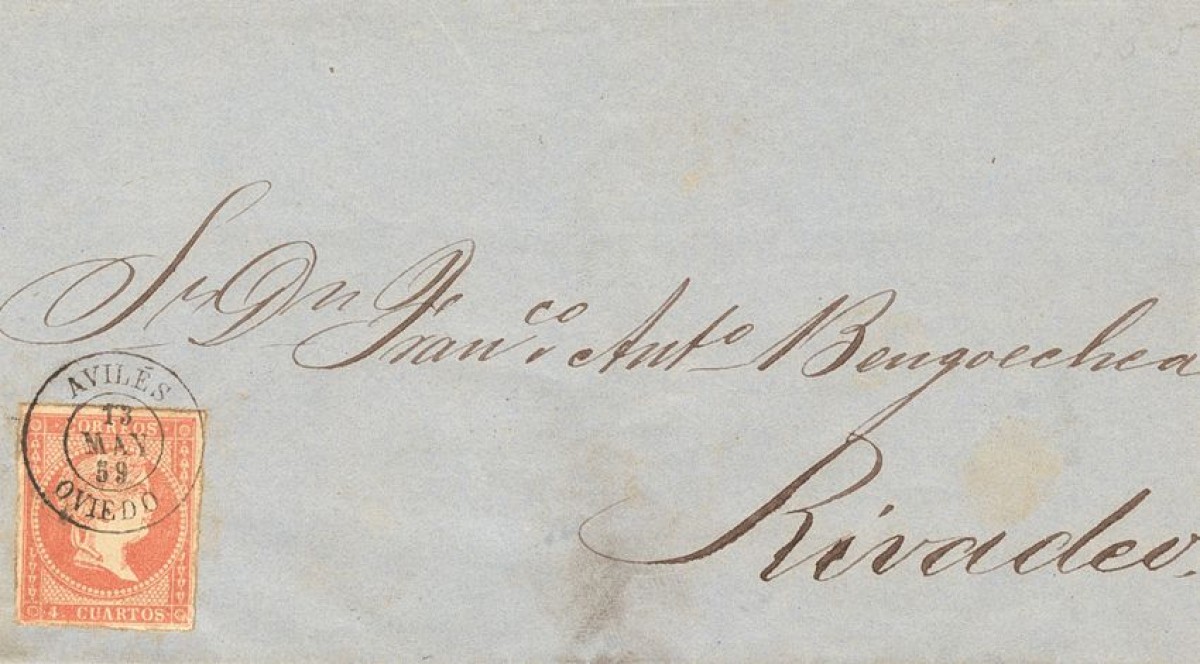 Sr Dn Franco Anto Bengoechea
Rivadeo.
AVILÉS
13
MAY
59
OVIEDO
CORREOS
4 CUARTOS